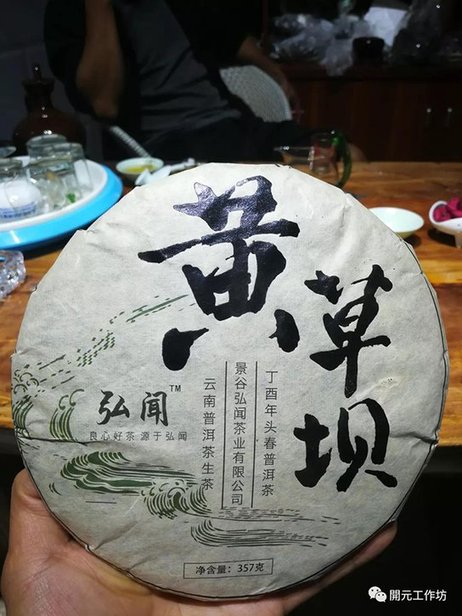 黄草坝
丁酉年头春普洱茶
景谷弘闻茶业有限公司
云南普洱茶生茶
弘闻™
良心好茶 源于弘闻
净含量：357克
開元工作坊